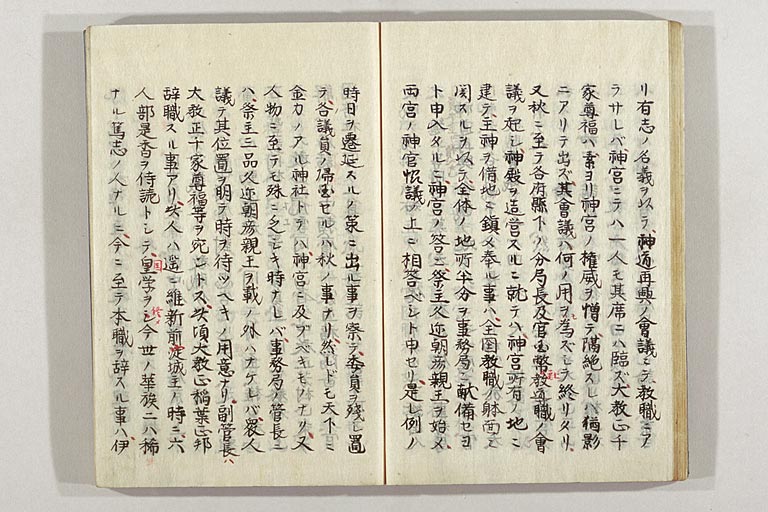 リ有志ノ名義ヲ以テ、神道再興ノ會議ニテ、教職ニア
ラサレバ神宮ニテハ一人モ其席ニハ臨ズ大教正千
家尊福ハ素ヨリ神宮ノ權威ヲ憎テ隔絶スレバ猶影
ニアリテ出ズ其會議ハ何ノ用ヲ為ズシテ終リタリ、
又秋ニ至テ各府縣下ノ分局長及官國幣教導職ノ會
議ヲ起シ神殿ヲ造営スルニ就テハ、神宮所有ノ地ニ
建テ、主神ヲ備地ニ鎮メ奉ル事ハ、全国教職ノ躰面ニ
関スルヲ以テ、全体ノ地所半分ヲ事務局ニ献備セヨ
ト申入タルニ、神宮ノ答ニ祭主久邇朝彦親王ヲ始メ、
両宮ノ神官恨議ノ上ニ相答ベシト申セリ、是レ例ノ
時日ヲ遷延スルノ策ニ出ル事ヲ察テ、委員ヲ残シ置
テ、各議員ノ帰国セルハ秋ノ事ナリ、然レドモ天下ニ
金力ノアル神社トテハ、神宮ニ及ブベキモノナリ、又
人物ニ至テモ殊ニ乏シキ時ナレバ、事務局ノ管長ニ
ハ、祭主二品久邇朝彦親王ヲ載ノ外ハナケレバ、衆人
議テ其位置ヲ明テ時ヲ待ツベキノ用意ナリ、副管長、
大教正千家尊福等ヲ宛ントス、此頃大教正稲葉正邦
辞職スル事アリ、此人ハ遥ニ維新前淀城主ノ時ニ六
人部是香ヲ侍読トシテ、皇学ヲシ、今世ノ華族ニハ稀
ナル篤志ノ人ナルニ、今ニ至テ本職ヲ辞スル事ハ、伊